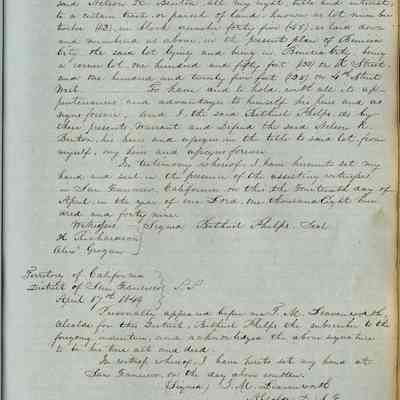 said Nelson R. Benton all my right title and interest,
to a certain tract or parcel of land, known as lot number
twelve (12), in block number forty five (45), as laid down
and numbered as above in the present plan of Benicia
City the said lot lying and being in Benicia City, being
a corner lot one hundred and fifty feet (150) on K Street
and one hundred and twenty five feet (125) on 4th Street
West. To have and to hold with all its ap-
purtenances and advantages to himself his heirs and as
signs forever, and I the said Bethuel Phelps, do by
these presents, Warrant and Defend the said Nelson R.
Benton, his heirs and assigns in the title to said lot, from
myself, my heirs and assigns forever.
In testimony whereof, I have hereunto set my
hand and seal in the presence of the assisting witnesses
in San Francisco, California on this the Fourteenth day of
April in the year of our Lord, One thousand eight hun
dred and forty nine.
Witnesses Signed Bethuel Phelps Seal
H Richardson
Alexr Grogan
Territory of California
District of San Francisco S.S.
April 17th 1849
Personally appeared before me T. M. Leavenworth,
Alcalde for this District, Bethuel Phelps the subscriber to the
foregoing indenture, and acknowledged the above signature
to be his true act and deed.
In witness whereof I have hereto set my hand at
San Francisco, on the day above written.
(Signed) T. M. Leavenworth
Alcalde D. S. F.